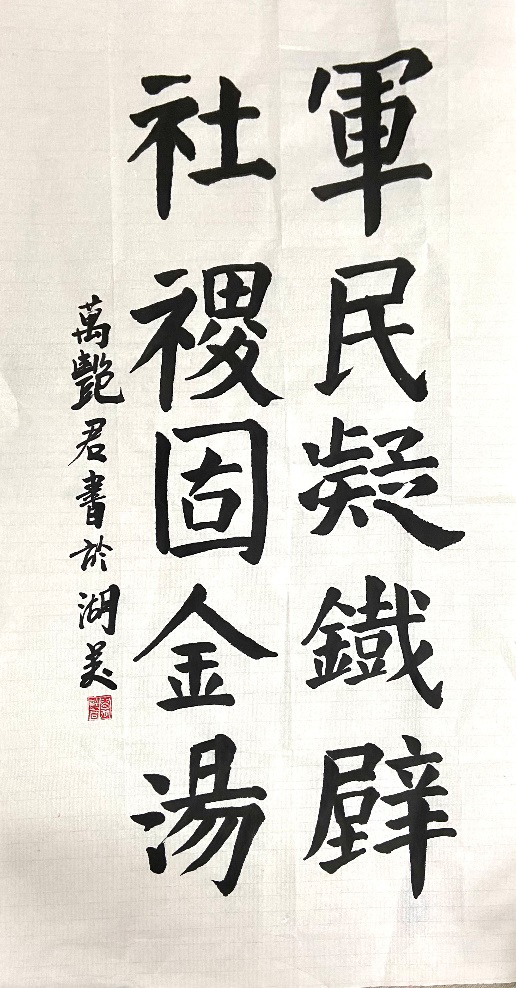 軍民凝鐵壁
社稷固金湯
萬艷君書於湖美